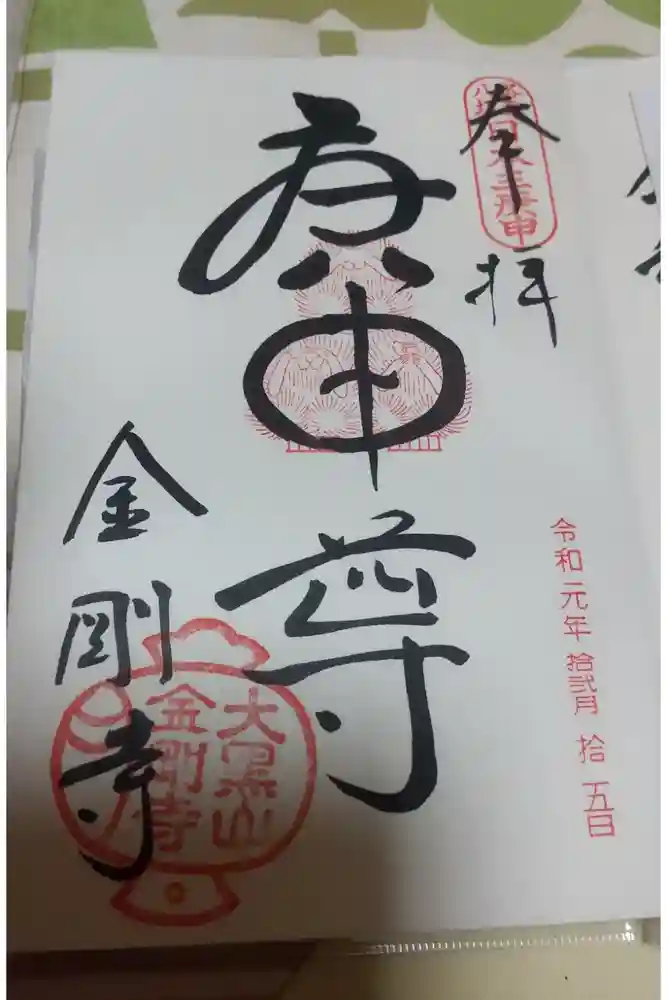 奉拝
日本三庚申
庚申尊
令和元年 拾弐月 拾五日
金剛寺
大黒山
金剛寺